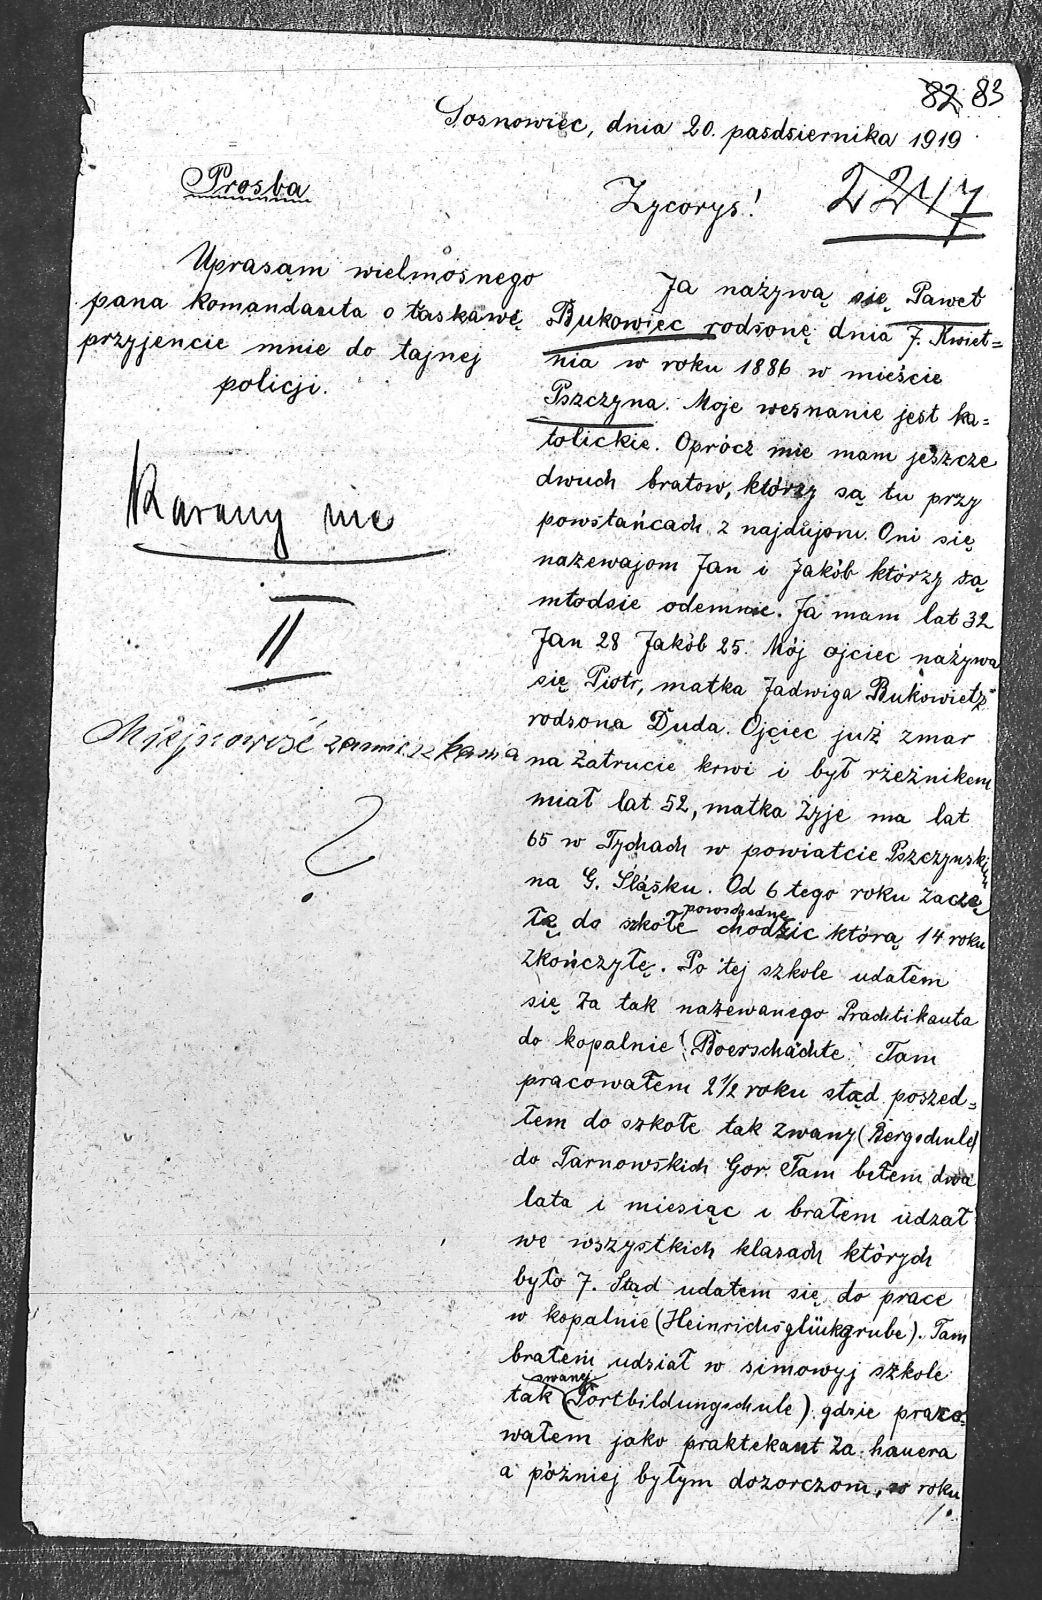 82 83
Sosnowiec, dnia 20. pasdsiernika 1919
Prosba
Uprasąm wielmosnego
pana komandanta o łaskawę
przyjencie mnie do tajnej
policji.
Karany nie
II
Miejsnowość zamieszkania
?
Zycorys!
2247
Ja nażywą się Paweł
Bukowiec rodsonę dnia 7. Kwiet=
nia w roku 1886 w mieście
Pszczyna. Moje wesnanie jest ka=
tolickie. Oprócz mie mam jeszcze
dwuch bratow, którzy są tu przy
powstańcach z najdujom. Oni się
nażewajom Jan i Jakób którzy są
młodsie odemnie. Ja mam lat 32
Jan 28 Jakób 25. Mój ojciec nażywa
się Piotr, matka Jadwiga Bukowietz
rodsona Duda. Ojciec już zmar
na zatrucie krwi i był rzeżnikem
miał lat 52, matka żyje ma lat
65 w Tychach w powiatcie Pszczynskim
na G. Śląsku. Od 6 tego roku zaczę
łę do szkołe powschednę chodzic którą 14 roku
zkończyłę. Po tej szkole udałem
się za tak nażewanego Prachtikanta
do kopalnie (Boerschächte. Tam
pracowałem 2 1/2 roku stąd poszed=
łem do szkołe tak zwany (Bergschule)
do Tarnowskich Gor. Tam bełem dwa
lata i miesiąc i brałem udzał
we wszystkich klasach których
było 7. Stąd udałem się do prace
w kopalnie (Heinrichsglückgrube). Tam
brałem udsiał w simowyj szkole
tak swanej (Fortbildungschule) gdsie praco=
wałem jako praktekant za hauera
a póżniej byłym dozorczom, w roku
/.